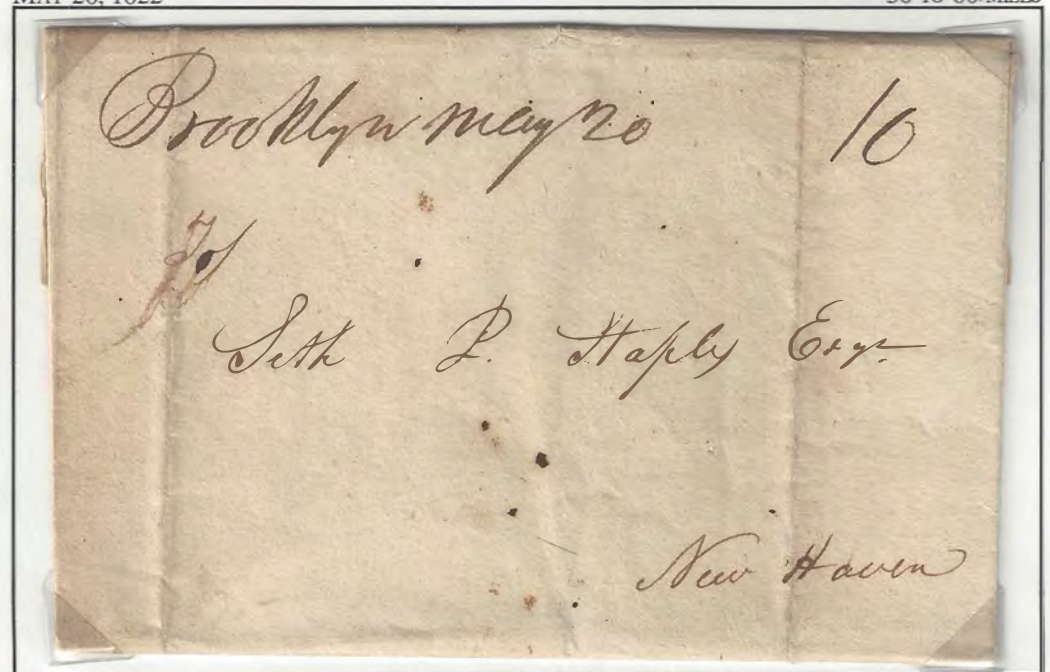 MAY 20, 1822 30 TO 80 MILES
Brooklyn May 20 10
Seth P. Staples Esqr
New Haven